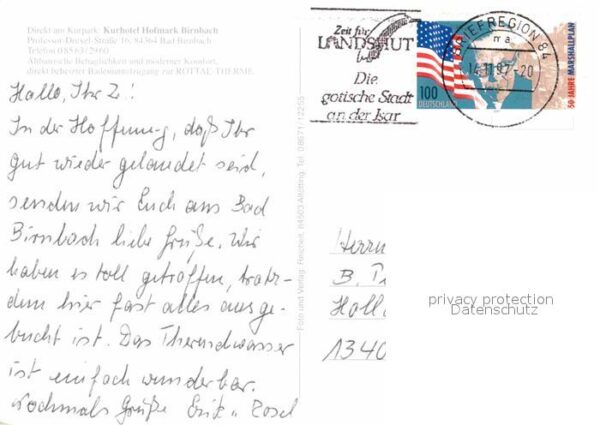 Direkt am Kurpark: Kurhotel Hofmark Birnbach
Professor-Drexel-Straße 16, 84364 Bad Birnbach
Telefon 08563/2960
Altbairische Behaglichkeit und moderner Komfort,
direkt beheizter Bademantelzugang zur ROTTAL-THERME.
Hallo, Ihr 2!
In der Hoffnung, daß Ihr
gut wieder gelandet seid,
senden wir Euch aus Bad
Birnbach liebe Grüße. Wir
haben es toll getroffen, trotz-
dem hier fast alles ausge-
bucht ist. Das Thermalwasser
ist einfach wunderbar.
Nochmals Grüße Erik u. Rosel
Foto und Verlag: Reichelt, 84503 Altötting, Tel. 08671/12255
Zeit für
LANDSHUT
Die
gotische Stadt
an der Isar
BRIEFREGION 84
ma
14.11.97-20
100
DEUTSCHLAND
50 JAHRE MARSHALLPLAN
Herrn
B.
Holl
1340
privacy protection
Datenschutz